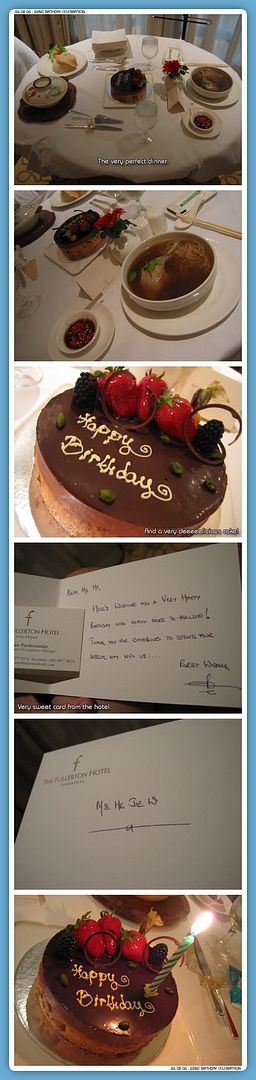 22ND BIRTHDAY CELEBRATION
The very perfect dinner.
Happy
Birthday
And a very deeeeelicious cake!
DEAR MS HE,
HERE'S WISHING YOU A VERY HAPPY
BIRTHDAY WITH MANY MORE TO FOLLOW!
THANK YOU FOR CHOOSING TO SPEND YOUR
SPECIAL DAY WITH US....
WARMEST WISHES,
f
FULLERTON HOTEL
SINGAPORE
Very sweet card from the hotel.
f
THE FULLERTON HOTEL
SINGAPORE
MS. HE JIE
Happy
Birthday
22ND BIRTHDAY CELEBRATION